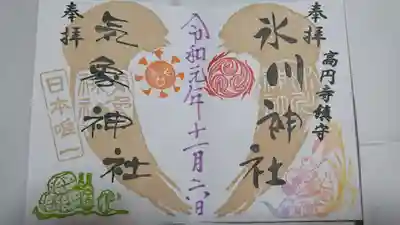 奉拝
高円寺鎮守
氷川神社
令和元年十一月二六日
奉拝
気象神社
日本唯一